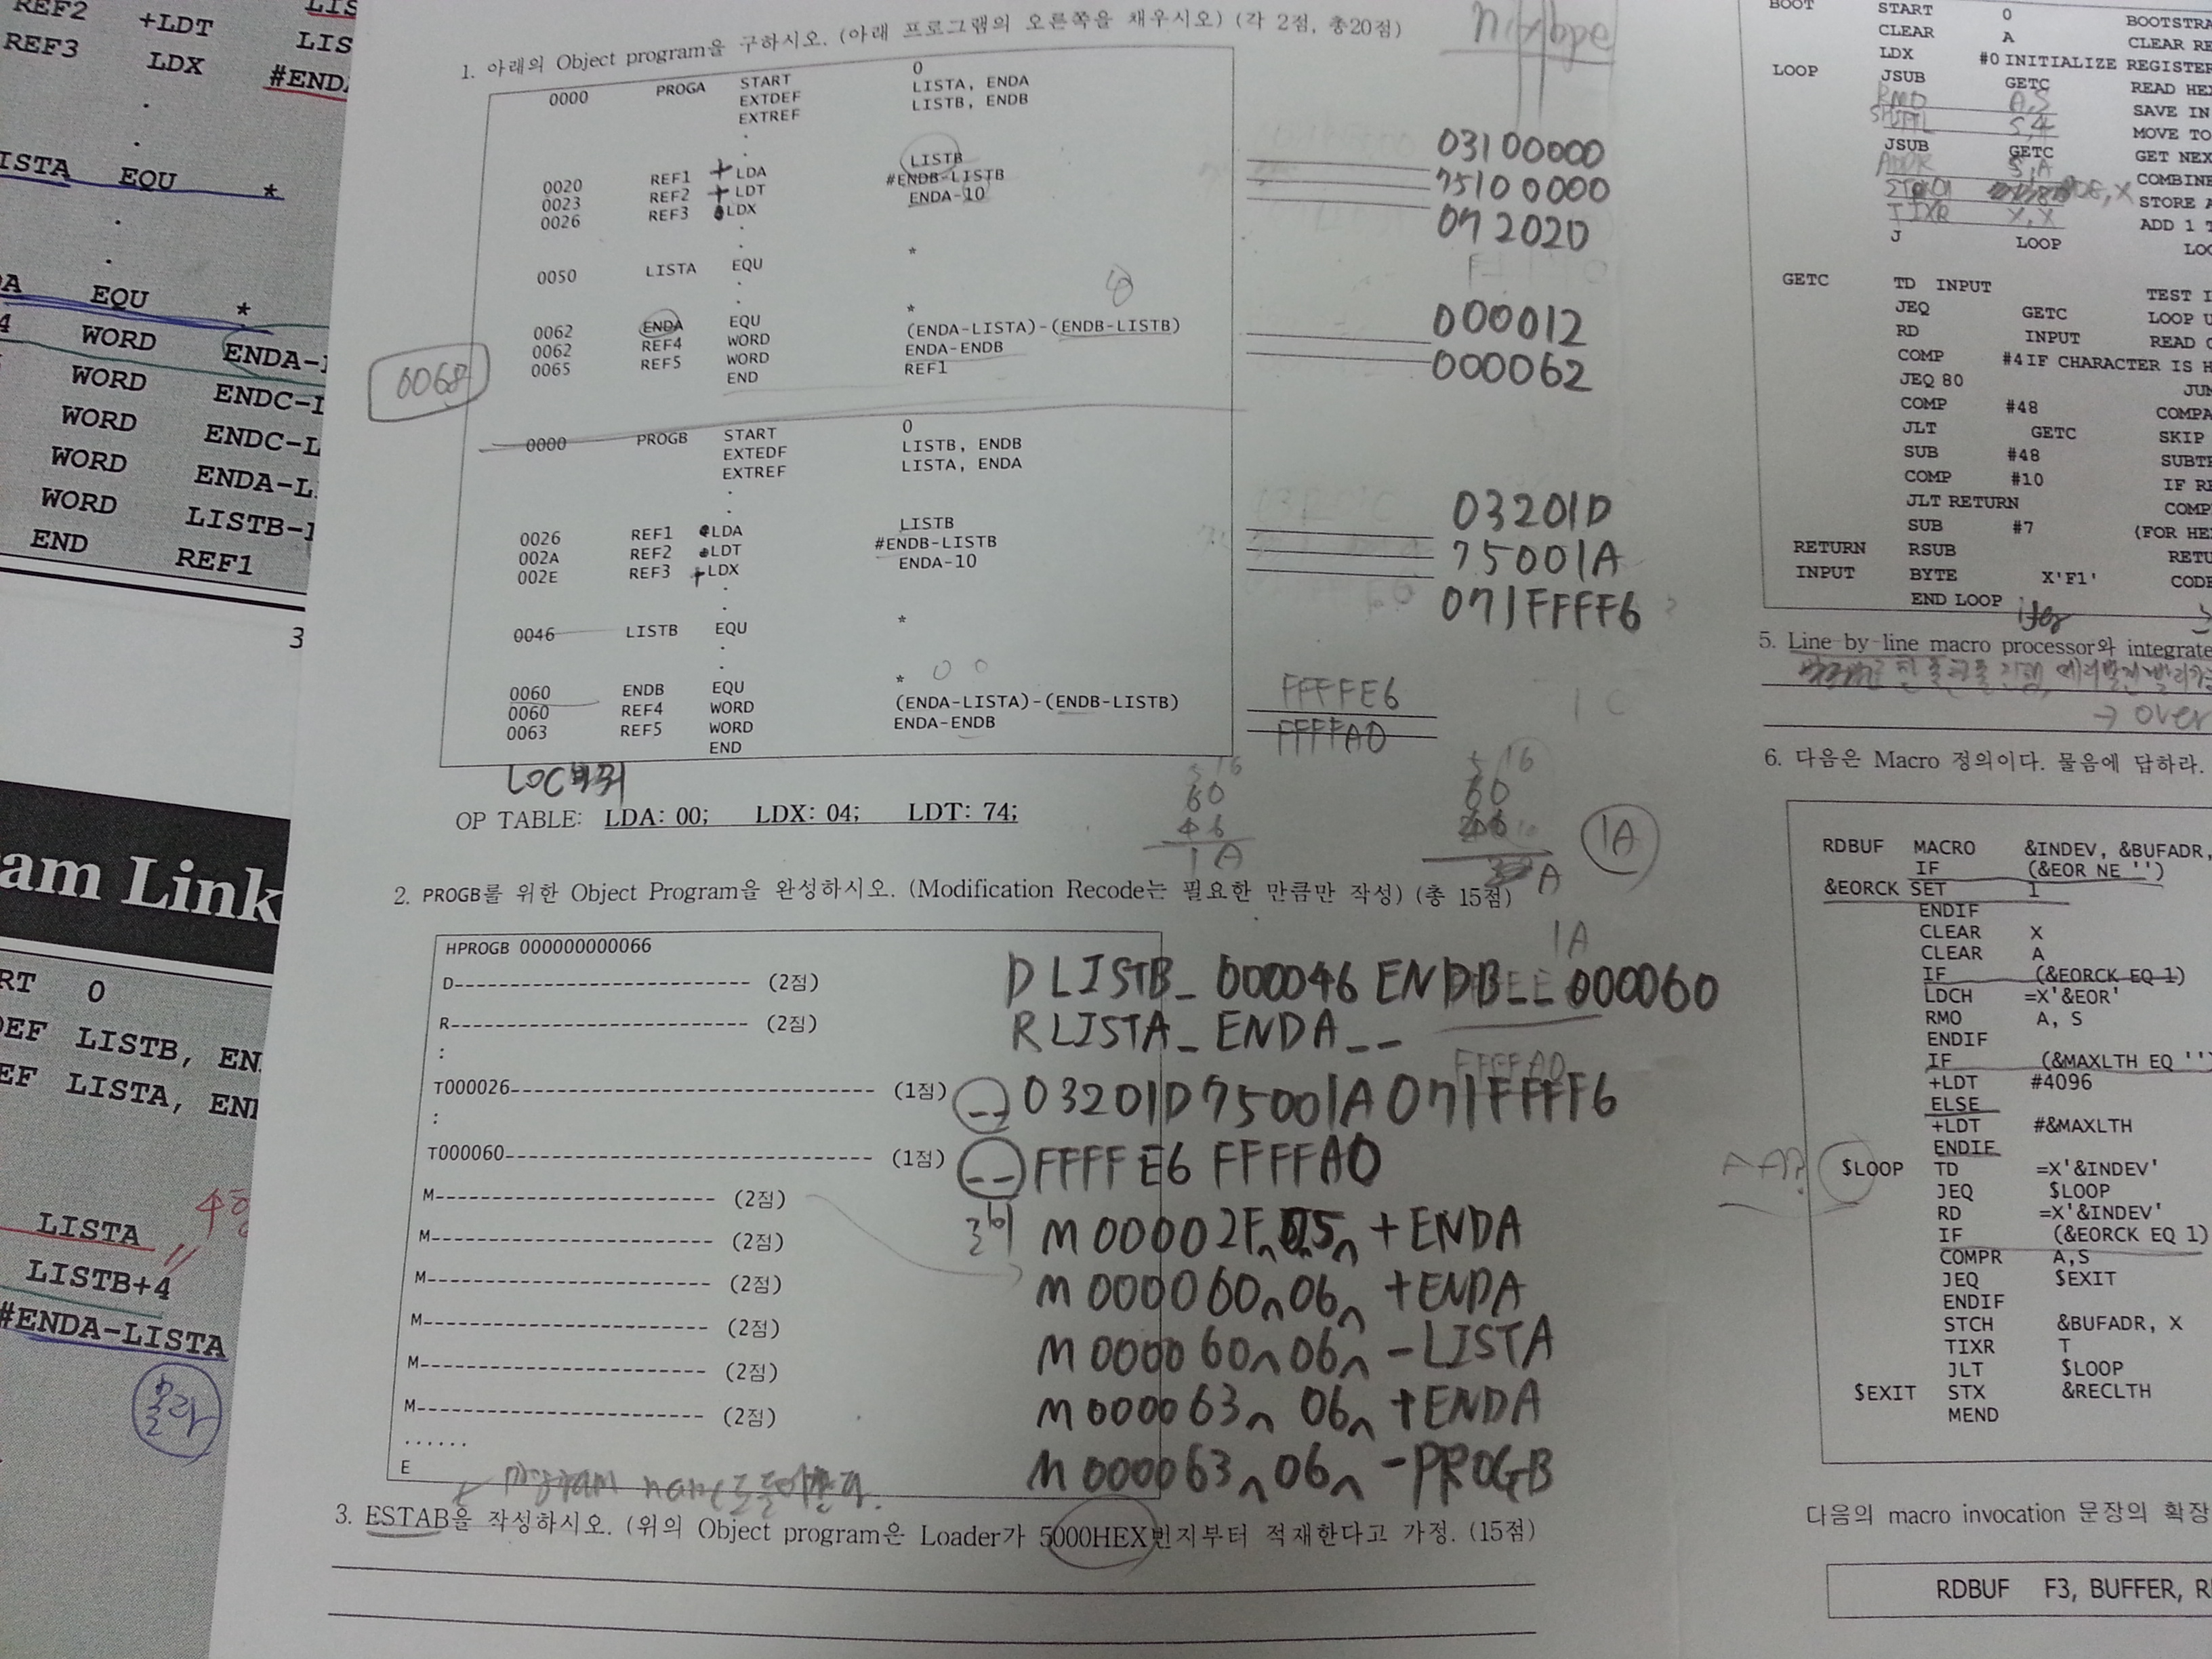 REF2 +LDT LIS
REF3 LDX #END
ISTA EQU *
EQU *
WORD ENDA-
WORD ENDC-L
WORD ENDC-L
WORD ENDA-L
WORD LISTB-
END REF1
3
am Link
RT 0
DEF LISTB, EN
EF LISTA, EN
LISTA
LISTB+4
#ENDA-LISTA
몰라
1. 아래의 Object program을 구하시오. (아래 프로그램의 오른쪽을 채우시오) (각 2점, 총20점)
0000 PROGA START 0
EXTDEF LISTA, ENDA
EXTREF LISTB, ENDB
0020 REF1 +LDA LISTB 03100000
0023 REF2 +LDT #ENDB-LISTB 75100000
0026 REF3 LDX ENDA-10 07202D
0050 LISTA EQU *
0062 ENDA EQU *
0062 REF4 WORD (ENDA-LISTA)-(ENDB-LISTB) 000012
0065 REF5 WORD ENDA-ENDB 000062
END REF1
0068
0000 PROGB START 0
EXTEDF LISTB, ENDB
EXTREF LISTA, ENDA
0026 REF1 LDA LISTB 03201D
002A REF2 LDT #ENDB-LISTB 75001A
002E REF3 +LDX ENDA-10 071FFFF6
0046 LISTB EQU *
0060 ENDB EQU *
0060 REF4 WORD (ENDA-LISTA)-(ENDB-LISTB) FFFFE6
0063 REF5 WORD ENDA-ENDB FFFFA0
END
LOC 바뀌
5 16
60
46
1A
5 16
60
A
1A
OP TABLE: LDA: 00; LDX: 04; LDT: 74;
2. PROGB를 위한 Object Program을 완성하시오. (Modification Recode는 필요한 만큼만 작성) (총 15점)
HPROGB 000000000066
1A
D------------------------- (2점) D LISTB_ 000046 ENDB__000060
R------------------------- (2점) R LISTA_ ENDA__
:
FFFFA0
T000026------------------------------ (1점) __ 03201D75001A071FFFF6
:
T000060------------------------------ (1점) __ FFFFE6 FFFFA0
M----------------------- (2점) M 00002F 05 +ENDA
M----------------------- (2점) M 000060 06 +ENDA
M----------------------- (2점) M 000060 06 -LISTA
M----------------------- (2점) M 000063 06 +ENDA
M----------------------- (2점) M 000063 06 -PROGB
M----------------------- (2점)
......
E
3. ESTAB을 작성하시오. (위의 Object program은 Loader가 5000HEX번지부터 적재한다고 가정. (15점)
BOOT START 0 BOOTSTRA
CLEAR A CLEAR RE
LDX #0 INITIALIZE REGISTER
LOOP JSUB GETC READ HE
RMO A,S SAVE IN
SHIFTL S,4 MOVE TO
JSUB GETC GET NEX
ADDR S,A COMBINE
STORE A
TIXR X,X ADD 1 T
J LOOP LOO
GETC TD INPUT TEST I
JEQ GETC LOOP U
RD INPUT READ C
COMP #4 IF CHARACTER IS H
JEQ 80 JUM
COMP #48 COMPA
JLT GETC SKIP
SUB #48 SUBTR
COMP #10 IF RE
JLT RETURN COMP
SUB #7 (FOR HE
RETURN RSUB RETU
INPUT BYTE X'F1' CODE
END LOOP
5. Line-by-line macro processor와 integrate
→ over
6. 다음은 Macro 정의이다. 물음에 답하라.
RDBUF MACRO &INDEV, &BUFADR,
IF (&EOR NE '')
&EORCK SET 1
ENDIF
CLEAR X
CLEAR A
IF (&EORCK EQ 1)
LDCH =X'&EOR'
RMO A, S
ENDIF
IF (&MAXLTH EQ ''
+LDT #4096
ELSE
+LDT #&MAXLTH
ENDIF
AA? $LOOP TD =X'&INDEV'
JEQ $LOOP
RD =X'&INDEV'
IF (&EORCK EQ 1)
COMPR A,S
JEQ $EXIT
ENDIF
STCH &BUFADR, X
TIXR T
JLT $LOOP
$EXIT STX &RECLTH
MEND
다음의 macro invocation 문장의 확장
RDBUF F3, BUFFER, R